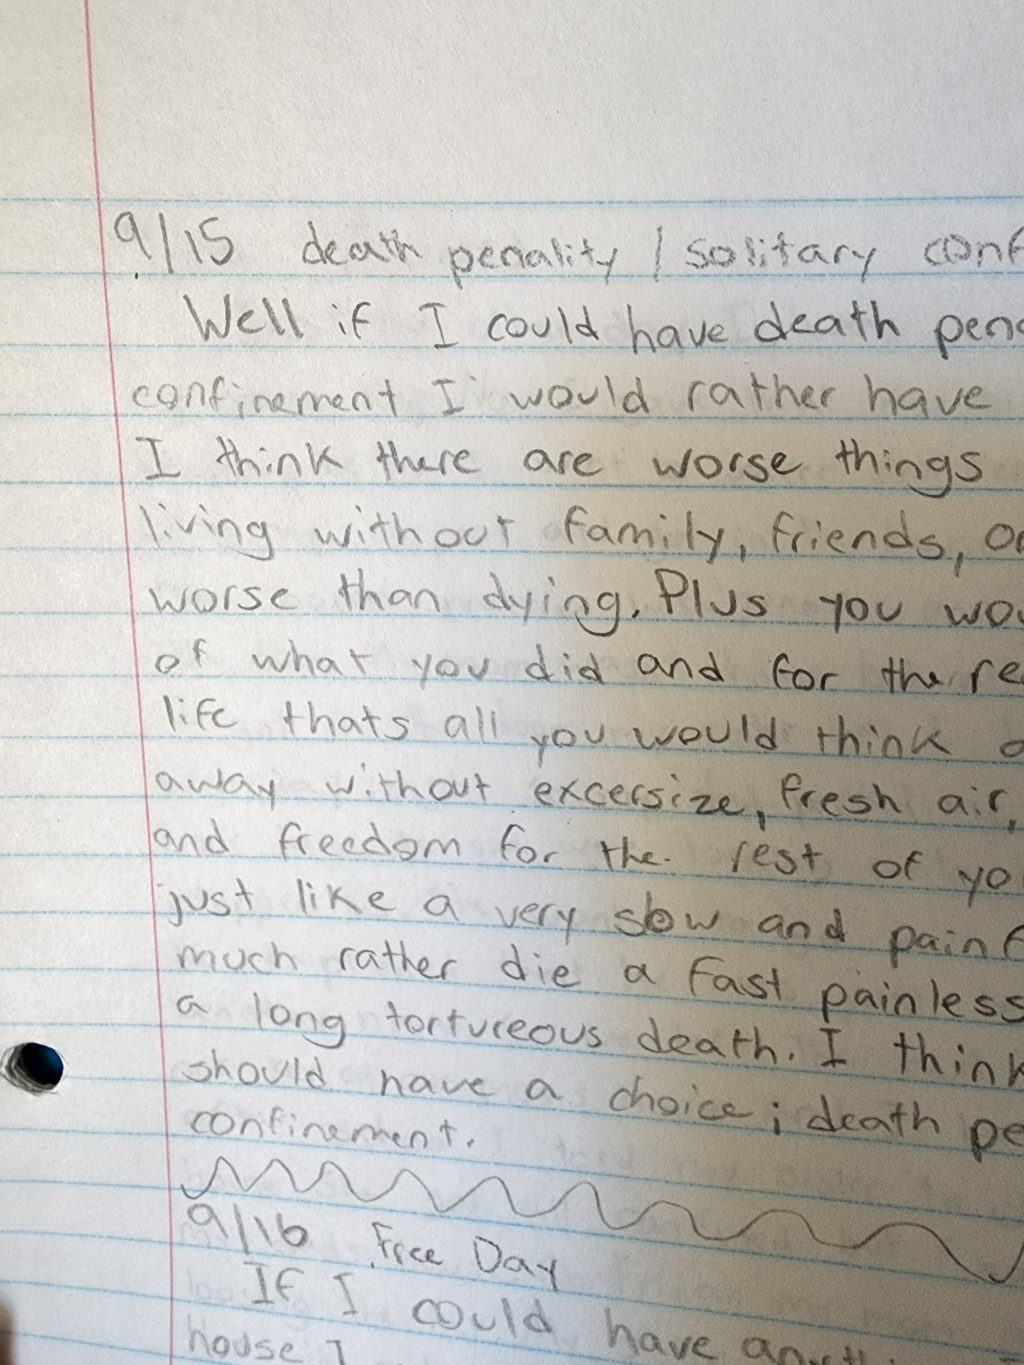 9/15 death penality / solitary conf
Well if I could have death pen
confinement I would rather have
I think there are worse things
living without family, friends, or
worse than dying. Plus you wou
of what you did and for the re
life thats all you would think o
away without excersize, fresh air,
and freedom for the rest of yo
just like a very slow and painf
much rather die a fast painless
a long tortureous death. I think
should have a choice; death pe
confinement.
9/16 Free Day
If I could have
house I